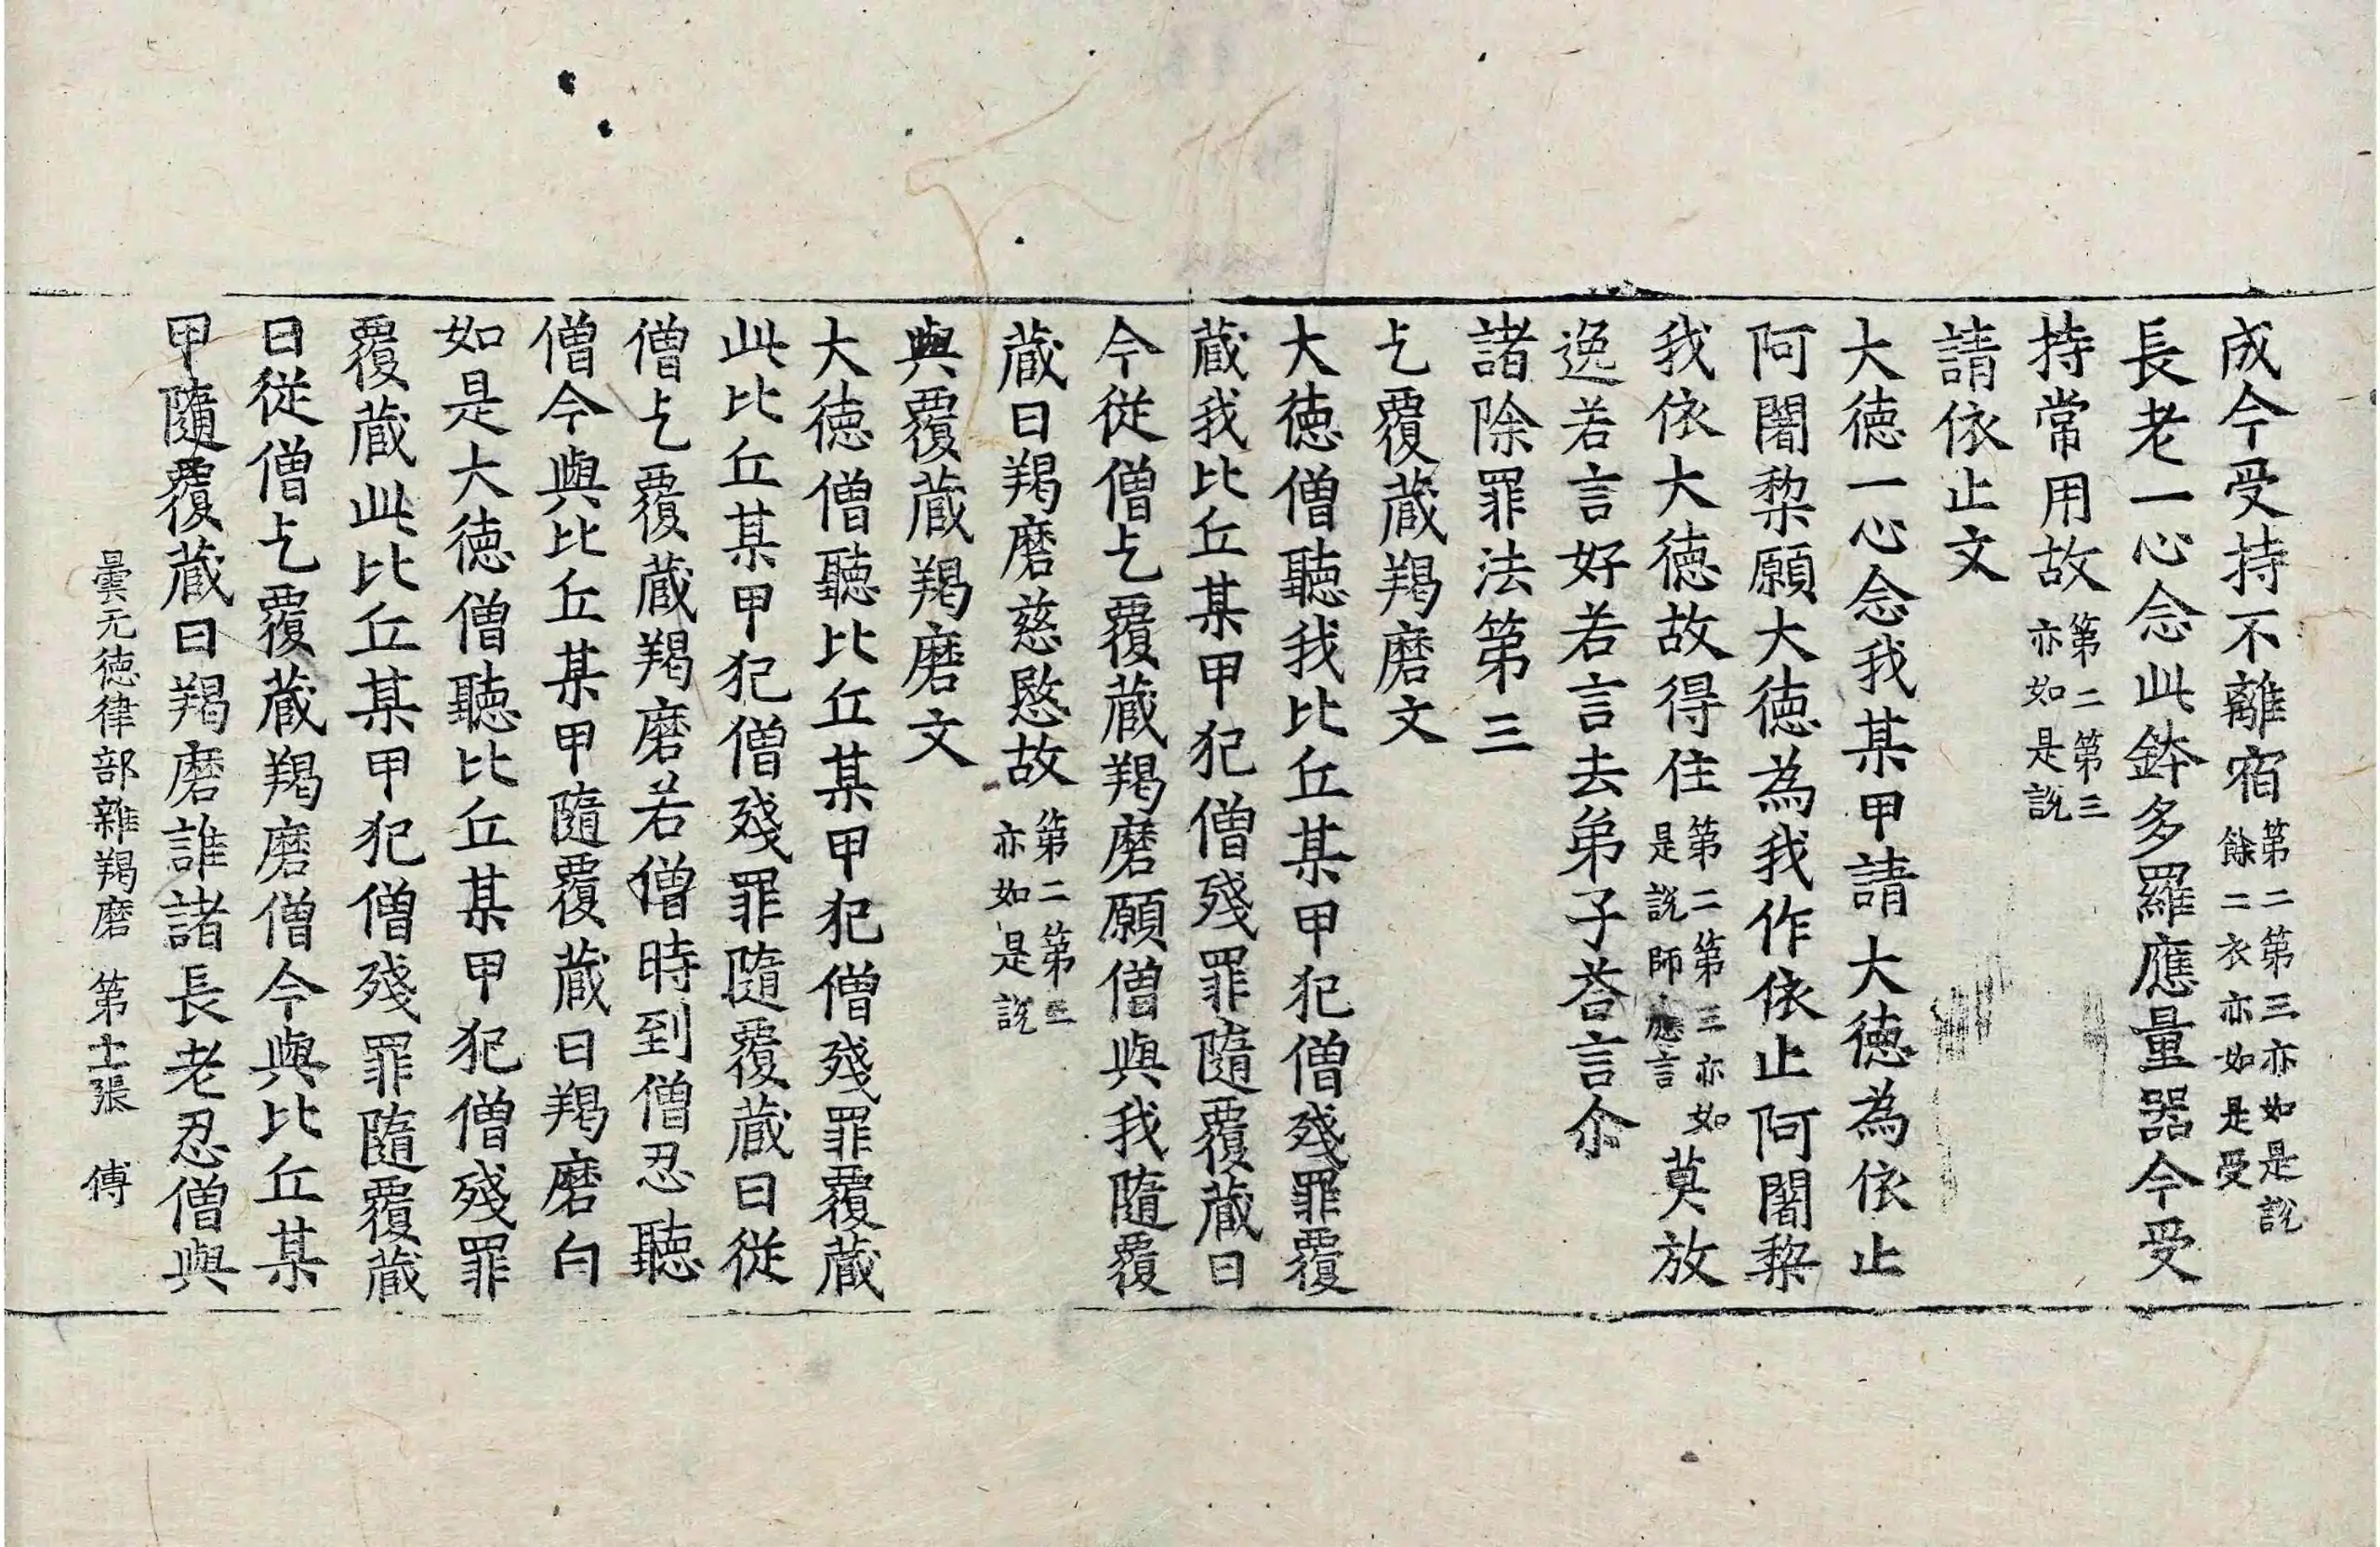 成今受持不離宿第二第三亦如是說餘二衣亦如是受
長老一心念此鉢多羅應量器今受
持常用故第二第三亦如是說
請依止文
大德一心念我某甲請大德為依止
阿闍棃願大德為我作依止阿闍棃
我依大德故得住第二第三亦如是說師應言莫放
逸若言好若言去弟子荅言尒
諸除罪法第三
乞覆蔵羯磨文
大德僧聽我比丘某甲犯僧殘罪覆
蔵我比丘某甲犯僧殘罪隨覆蔵日
今從僧乞覆蔵羯磨願僧與我隨覆
蔵日羯磨慈愍故第二第三亦如是說
與覆蔵羯磨文
大德僧聽比丘某甲犯僧殘罪覆蔵
此比丘某甲犯僧殘罪隨覆蔵日從
僧乞覆蔵羯磨若僧時到僧忍聽
僧今與比丘某甲隨覆蔵日羯磨白
如是大德僧聽比丘某甲犯僧殘罪
覆蔵此比丘某甲犯僧殘罪隨覆蔵
日從僧乞覆蔵羯磨僧今與比丘某
甲隨覆蔵日羯磨誰諸長老忍僧與
曇无德律部雜羯磨 第十一張 傅